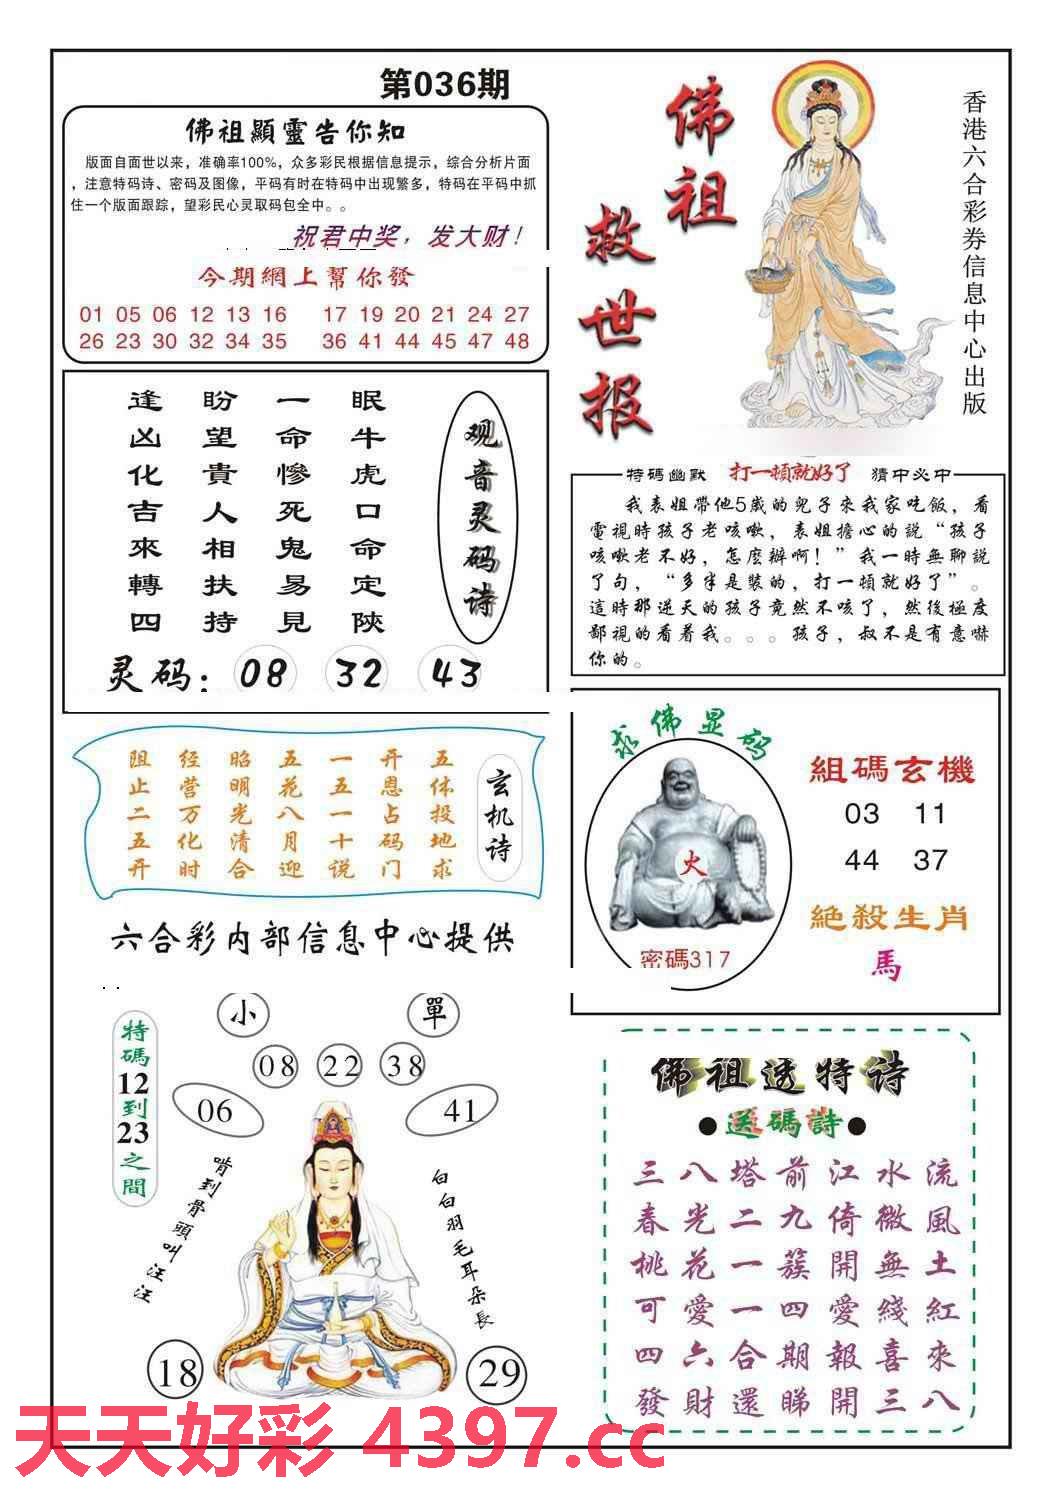 第036期
佛祖顯靈告你知
版面自面世以来，准确率100%，众多彩民根据信息提示，综合分析片面
，注意特码诗、密码及图像，平码有时在特码中出现繁多，特码在平码中抓
住一个版面跟踪，望彩民心灵取码包全中。。
祝君中奖，发大财！
今期網上幫你發
01 05 06 12 13 16 17 19 20 21 24 27
26 23 30 32 34 35 36 41 44 45 47 48
佛祖
救世报
香港六合彩券信息中心出版
观音灵码诗
眠牛虎口命定陝
一命慘死鬼易見
盼望貴人相扶持
逢凶化吉來轉四
灵码：08 32 43
特碼幽默 打一頓就好了 猜中必中
我表姐帶他5歲的兒子來我家吃飯，看
電視時孩子老咳嗽，表姐擔心的說“孩子
咳嗽老不好，怎麽辦啊！”我一時無聊說
了句，“多半是裝的，打一頓就好了”。
這時那逆天的孩子竟然不咳了，然後極度
鄙視的看着我。。。孩子，叔不是有意嚇
你的。
玄机诗
五体投地求
开恩占码门
一五一十说
五花八月迎
昭明光清合
经营万化时
阻止二五开
求佛显码
火
密碼317
組碼玄機
03 11
44 37
絕殺生肖
馬
六合彩内部信息中心提供
特碼12到23之間
小 單
08 22 38
06 41
啃到骨頭叫汪汪
白白羽毛耳朵長
18 29
佛祖透特诗
●送碼詩●
三八塔前江水流
春光二九倚微風
桃花一簇開無土
可愛一四愛綫紅
四六合期報喜來
發財還睇開三八
天天好彩 4397.cc